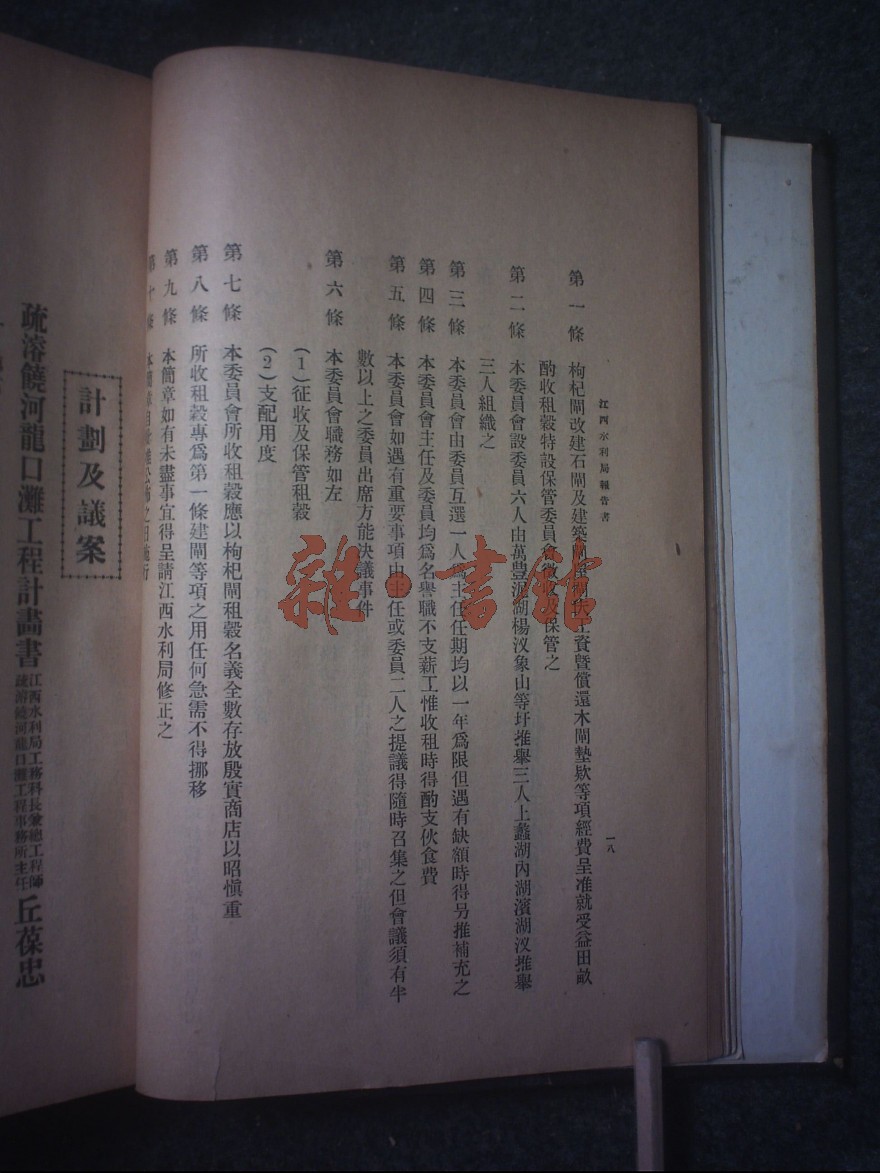 江西水利局報告書
一八
第一條 枸杞閘改建石閘及建築 資曁償還木閘墊欵等項經費呈准就受益田畝
酌收租穀特設保管委員會 及保管之
第二條 本委員會設委員六人由萬豊泥湖楊汊象山等圩推舉三人上蠡湖內湖濱湖汊推舉
三人組織之
第三條 本委員會由委員互選一人爲主任任期均以一年爲限但遇有缺額時得另推補充之
第四條 本委員會主任及委員均爲名譽職不支薪工惟收租時得酌支伙食費
第五條 本委員會如遇有重要事項由主任或委員二人之提議得隨時召集之但會議須有半
數以上之委員出席方能決議事件
第六條 本委員會職務如左
(1)征收及保管租穀
(2)支配用度
第七條 本委員會所收租穀應以枸杞閘租穀名義全數存放殷實商店以昭愼重
第八條 所收租穀專爲第一條建閘等項之用任何急需不得挪移
第九條 本簡章如有未盡事宜得呈請江西水利局修正之
第十條 本簡章自 公佈之日施行
計劃及議案
疏濬饒河龍口灘工程計畫書
江西水利局工務科長兼總工程師
疏濬饒河龍口灘工程事務所主任
丘葆忠
雜·書館